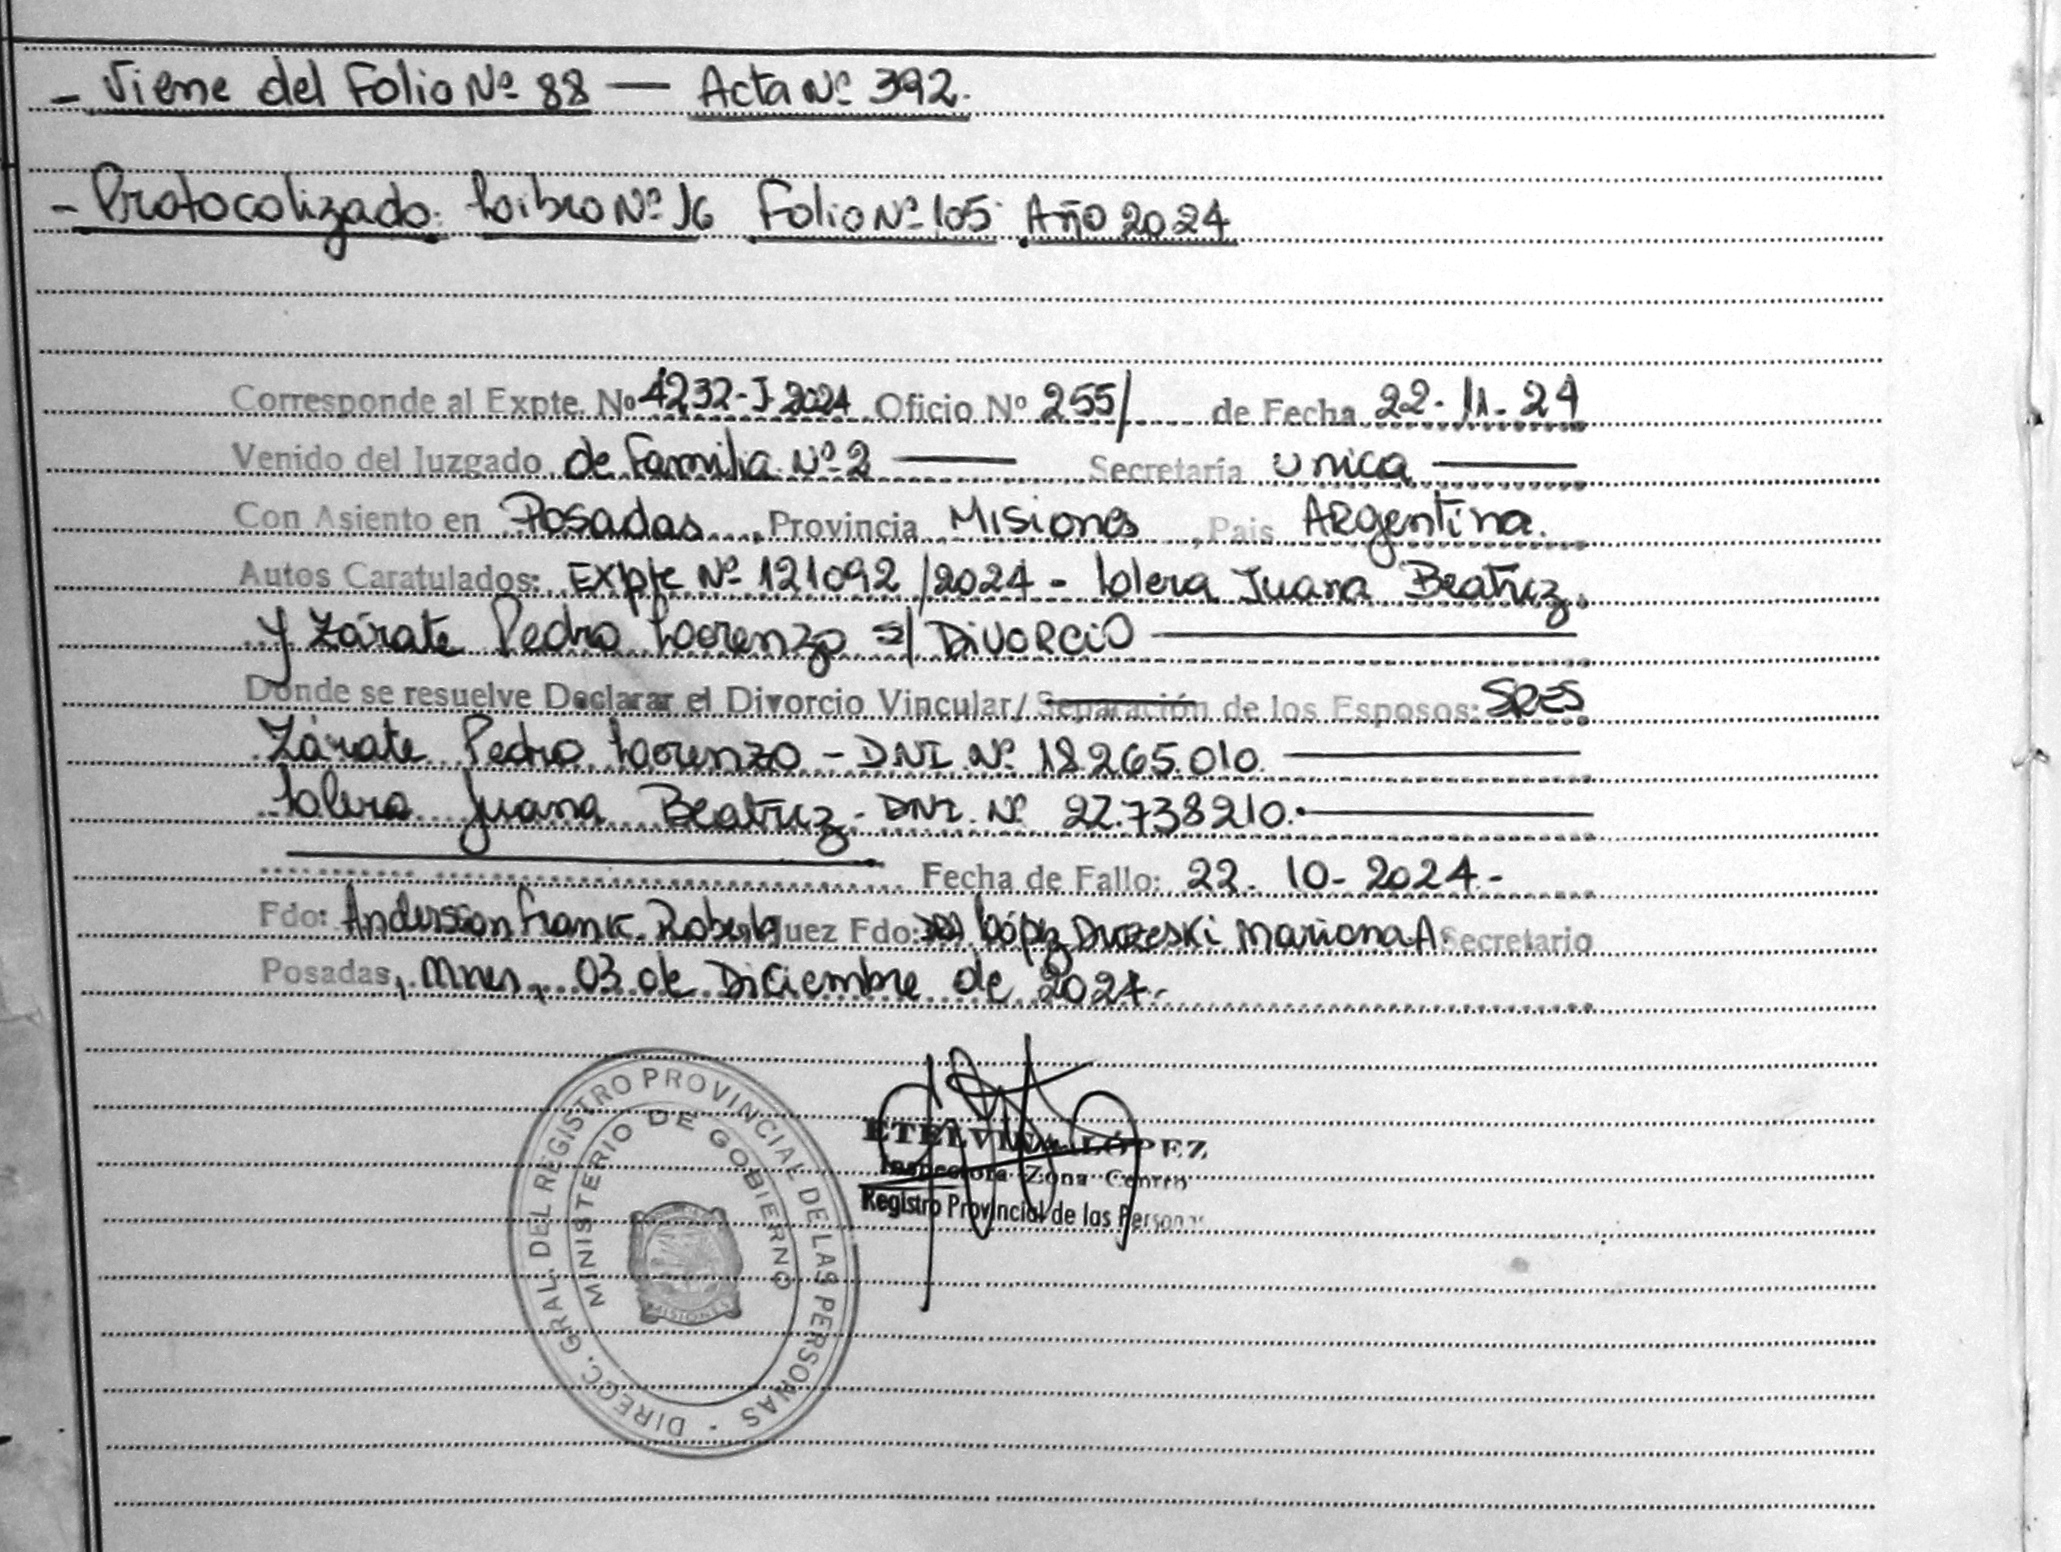 - Viene del Folio Nº 88 — Acta Nº 392.
- Protocolizado: Libro Nº 16 Folio Nº 105 Año 2024
Corresponde al Expte. Nº 4232-J 2024 Oficio Nº 255/ de Fecha 22-11-24
Venido del Juzgado de Familia Nº 2 — Secretaría Unica —
Con Asiento en Posadas, Provincia Misiones, Pais Argentina.
Autos Caratulados: Expte Nº 121092/2024 - Lolera Juana Beatriz
y Zárate Pedro Lorenzo s/ DIVORCIO —
Donde se resuelve Declarar el Divorcio Vincular/ Separación de los Esposos: SRES
Zárate Pedro Lorenzo - DNI Nº 18.265.010 —
Lolera Juana Beatriz - DNI. Nº 22.738210. —
Fecha de Fallo: 22-10-2024.-
Fdo: Anderson Frank Robert Juez Fdo: López Mariana A. Secretario
Posadas, Mnes, 03 de Diciembre de 2024.-
DIRECC. GRAL. DEL REGISTRO PROVINCIAL DE LAS PERSONAS -
MINISTERIO DE GOBIERNO
MISIONES
ETELVINA LÓPEZ
Inspectora Zona Centro
Registro Provincial de las Personas